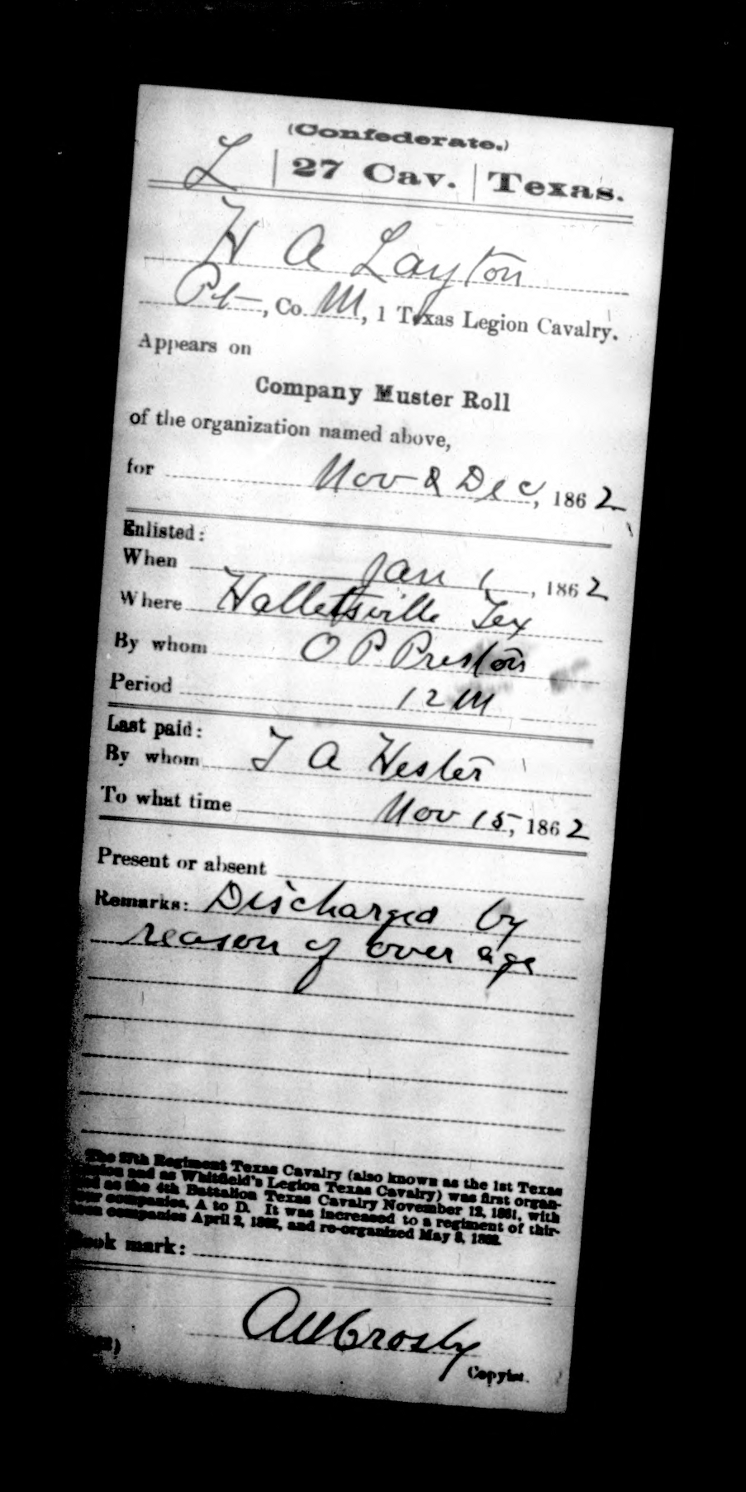 (Confederate.)
L | 27 Cav. | Texas.
H A Layton
Pt, Co. M, 1 Texas Legion Cavalry.
Appears on
Company Muster Roll
of the organization named above,
for Nov & Dec, 1862
Enlisted:
When Jan 1, 1862
Where Hallettsville Tex
By whom O P Preston
Period 12 M
Last paid:
By whom J A Hester
To what time Nov 15, 1862
Present or absent
Remarks: Discharged by
reason of over age
The 27th Regiment Texas Cavalry (also known as the 1st Texas
Legion and as Whitfield's Legion Texas Cavalry) was first organ-
ized as the 4th Battalion Texas Cavalry November 12, 1861, with
four companies, A to D. It was increased to a regiment of thir-
teen companies April 2, 1862, and re-organized May 8, 1862.
Book mark:
Crosby
Copyist.